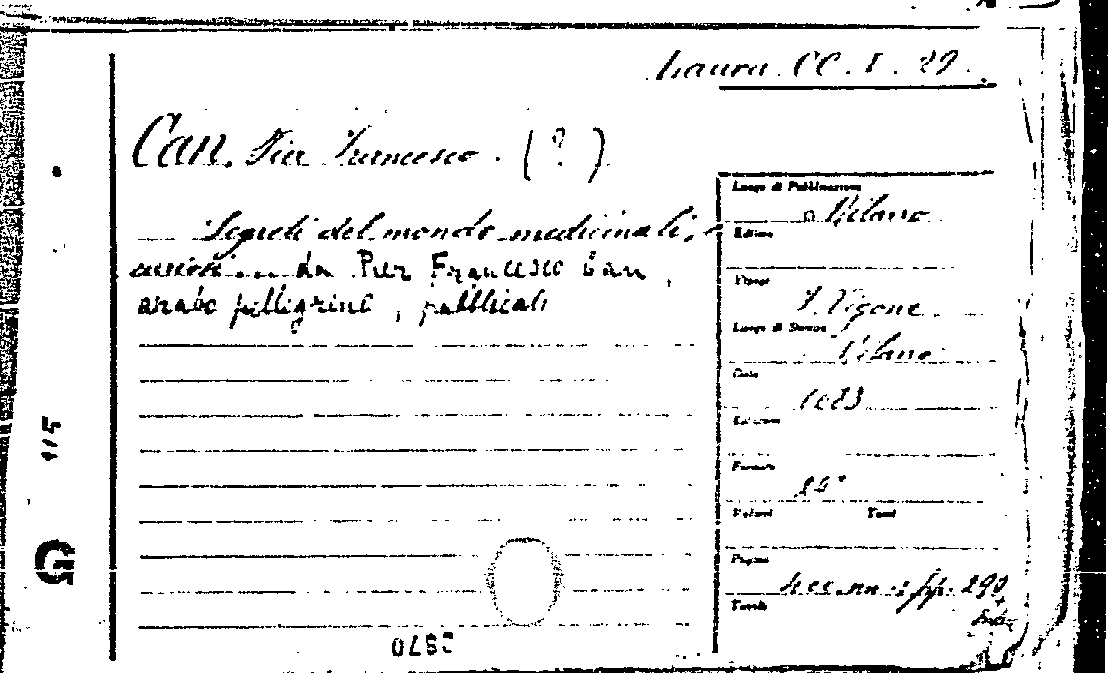 Laura CC. I. 29.
Can. Pier Francesco. (?)
Segreti del mondo medicinali, e
curiosi... da Pier Francesco Can,
arabo pellegrino, pubblicati
Luogo di Pubblicazione
Milano
Editore
Stampe
F. Vigone
Luogo di Stampa
Milano
Data
1683
Edizione
Formato
24°
Volumi Tomi
Pagine
pp. 290
Tavole
2970
G